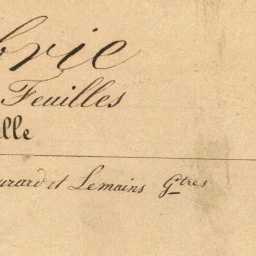 brie
Feuilles
lle
urard et Lemains G^tres